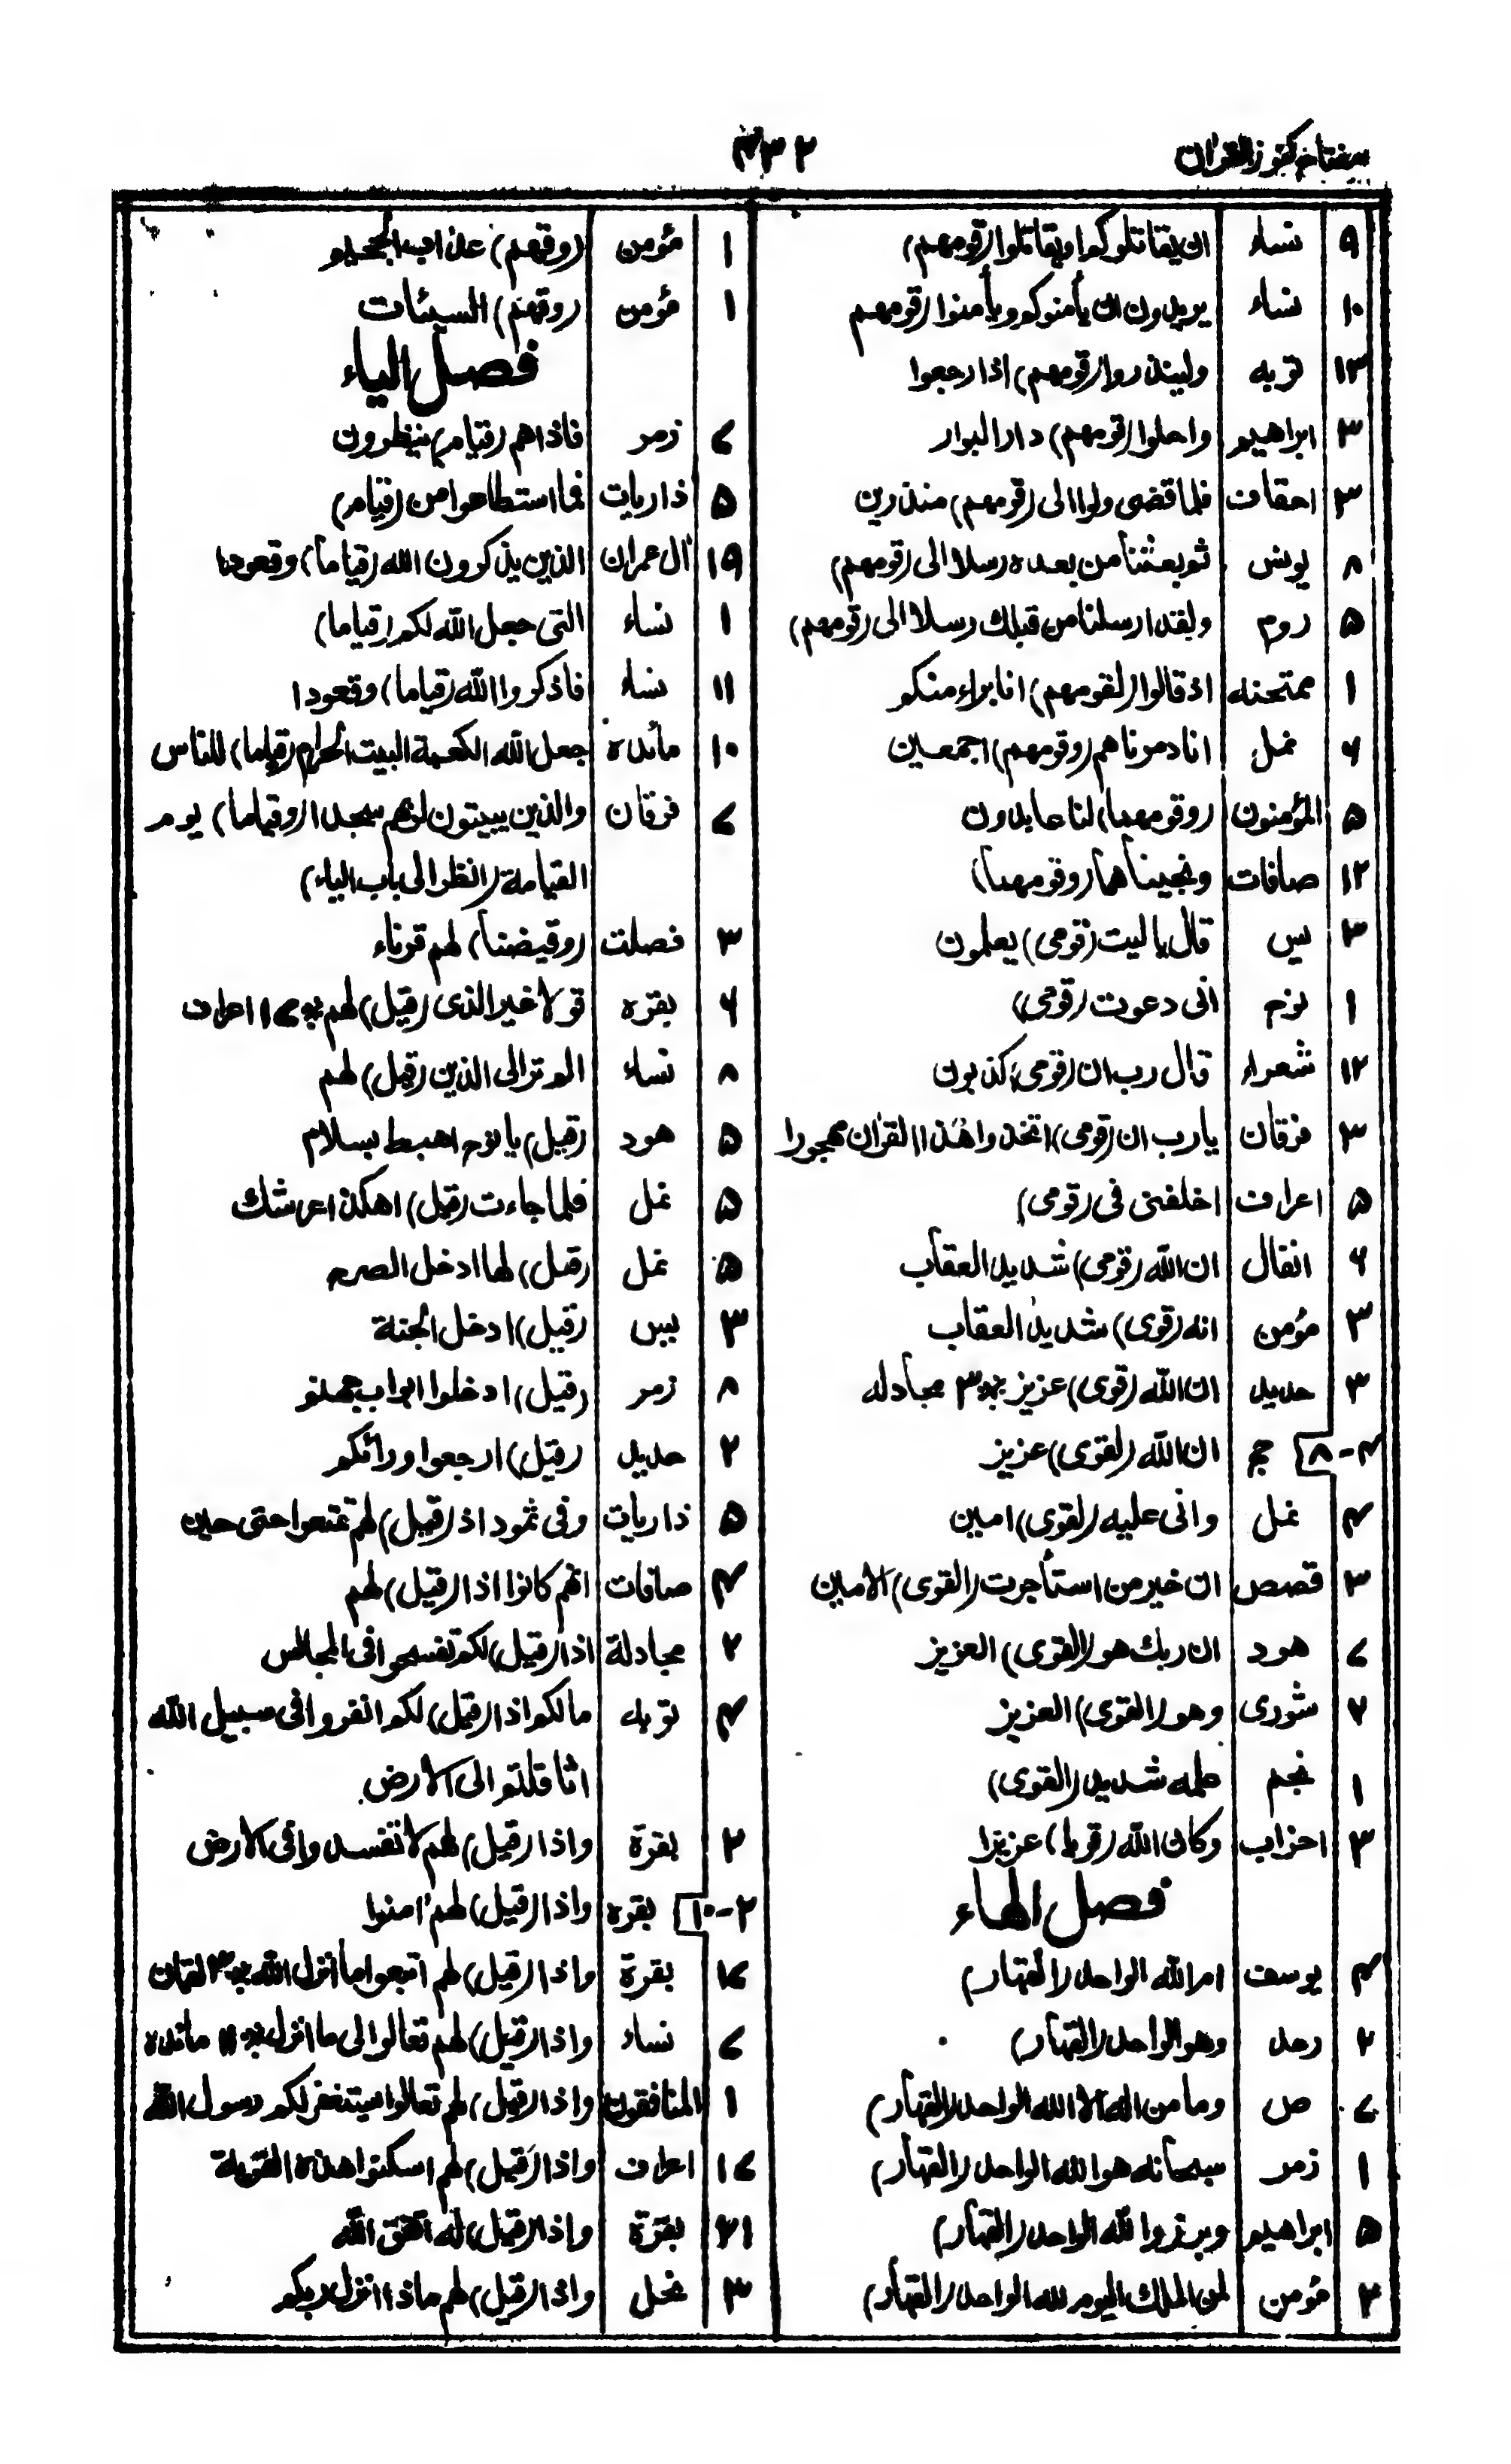 مفتاح كنوز القرآن
۴۳۲
۹ نساء ان يقاتلوكم او يقاتلوا (قومهم)
۱۰ نساء يريدون ان يأمنوكم ويأمنوا (قومهم
۱۳ توبه ولينذروا (قومهم) اذا رجعوا
۳ ابراهيم واحلوا (قومهم) دار البوار
۳ احقاف فلما قضى ولوا الى (قومهم) منذرين
۸ يونس ثم بعثنا من بعده رسلا الى (قومهم)
۵ روم ولقد ارسلنا من قبلك رسلا الى (قومهم)
۱ ممتحنه اذ قالوا (لقومهم) انا براء منكم
۴ نمل انا دمرناهم (وقومهم) اجمعين
۵ المؤمنون (وقومهما) لنا عابدون
۱۲ صافات ونجيناهما (وقومهما)
۲ يس قال يا ليت (قومى) يعلمون
۱ نوح انى دعوت (قومى)
۱۲ شعراء قال رب ان (قومى) كذبون
۳ فرقان يارب ان (قومى) اتخذوا هٰذا القرآن مهجورا
۵ اعراف اخلفنى فى (قومى)
۶ انفال ان الله (قوى) شديد العقاب
۳ مؤمن انه (قوى) شديد العقاب
۳ حديد ان الله (قوى) عزيز ۳ مجادله
۴-۸ حج ان الله (لقوى) عزيز
۴ نمل وانى عليه (لقوى) امين
۳ قصص ان خير من استأجرت (القوى) الامين
۷ هود ان ربك هو (القوى) العزيز
۲ شورى وهو (القوى) العزيز
۱ نجم علمه شديد (القوى)
۳ احزاب وكان الله (قويا) عزيزا
فصل الهاء
۴ يوسف ام الله الواحد (القهار)
۲ رعد وهو الواحد (القهار)
۷ ص وما من اله الا الله الواحد (القهار)
۱ زمر سبحانه هو الله الواحد (القهار)
۵ ابراهيم وبرزوا لله الواحد (القهار)
۲ مؤمن لمن الملك اليوم لله الواحد (القهار)
۱ مؤمن (وقهم) عذاب الجحيم
۱ مؤمن (وقهم) السيئات
فصل الياء
۷ زمر فاذا هم (قيام) ينظرون
۵ ذاريات فما استطاعوا من (قيام)
۱۹ اٰل عمران الذين يذكرون الله (قياما) وقعودا
۱ نساء التى جعل الله لكم (قياما)
۱۱ نساء فاذكروا الله (قياما) وقعودا
۱۰ مائدة جعل الله الكعبة البيت الحرام (قياما) للناس
۷ فرقان والذين يبيتون لربهم سجدا (وقياما) يوم
القيامة (انظر الى باب الياء)
۳ فصلت (وقيضنا) لهم قرناء
۶ بقره قولا غير الذى (قيل) لهم اعراف
۸ نساء الم تر الى الذين (قيل) لهم
۵ هود (قيل) يا نوح اهبط بسلام
۵ نمل فلما جاءت (قيل) اهكذا عرشك
۵ نمل (قيل) لها ادخل الصرح
۳ يس (قيل) ادخل الجنة
۸ زمر (قيل) ادخلوا ابواب جهنم
۲ حديد (قيل) ارجعوا ورائكم
۵ ذاريات وفى ثمود اذ (قيل) لهم تمتعوا حتى حين
۴ صافات انهم كانوا اذا (قيل) لهم
۲ مجادلة اذا (قيل) لكم تفسحوا فى المجالس
۴ توبه مالكم اذا (قيل) لكم انفروا فى سبيل الله
اثاقلتم الى الارض
۲ بقرة واذا (قيل) لهم لا تفسدوا فى الارض
۲-۱۰ بقره واذا (قيل) لهم اٰمنوا
بقرة واذا (قيل) لهم اتبعوا ما أنزل الله ۳ لقمان
۷ نساء واذا (قيل) لهم تعالوا الى ما انزل مائده
۱ المنافقون واذا (قيل) لهم تعالوا يستغفر لكم رسول الله
اعراف واذا (قيل) لهم اسكنوا هذه القرية
۲۱ بقرة واذا (قيل) له اتق الله
۳ نحل واذا (قيل) لهم ماذا انزل ربكم